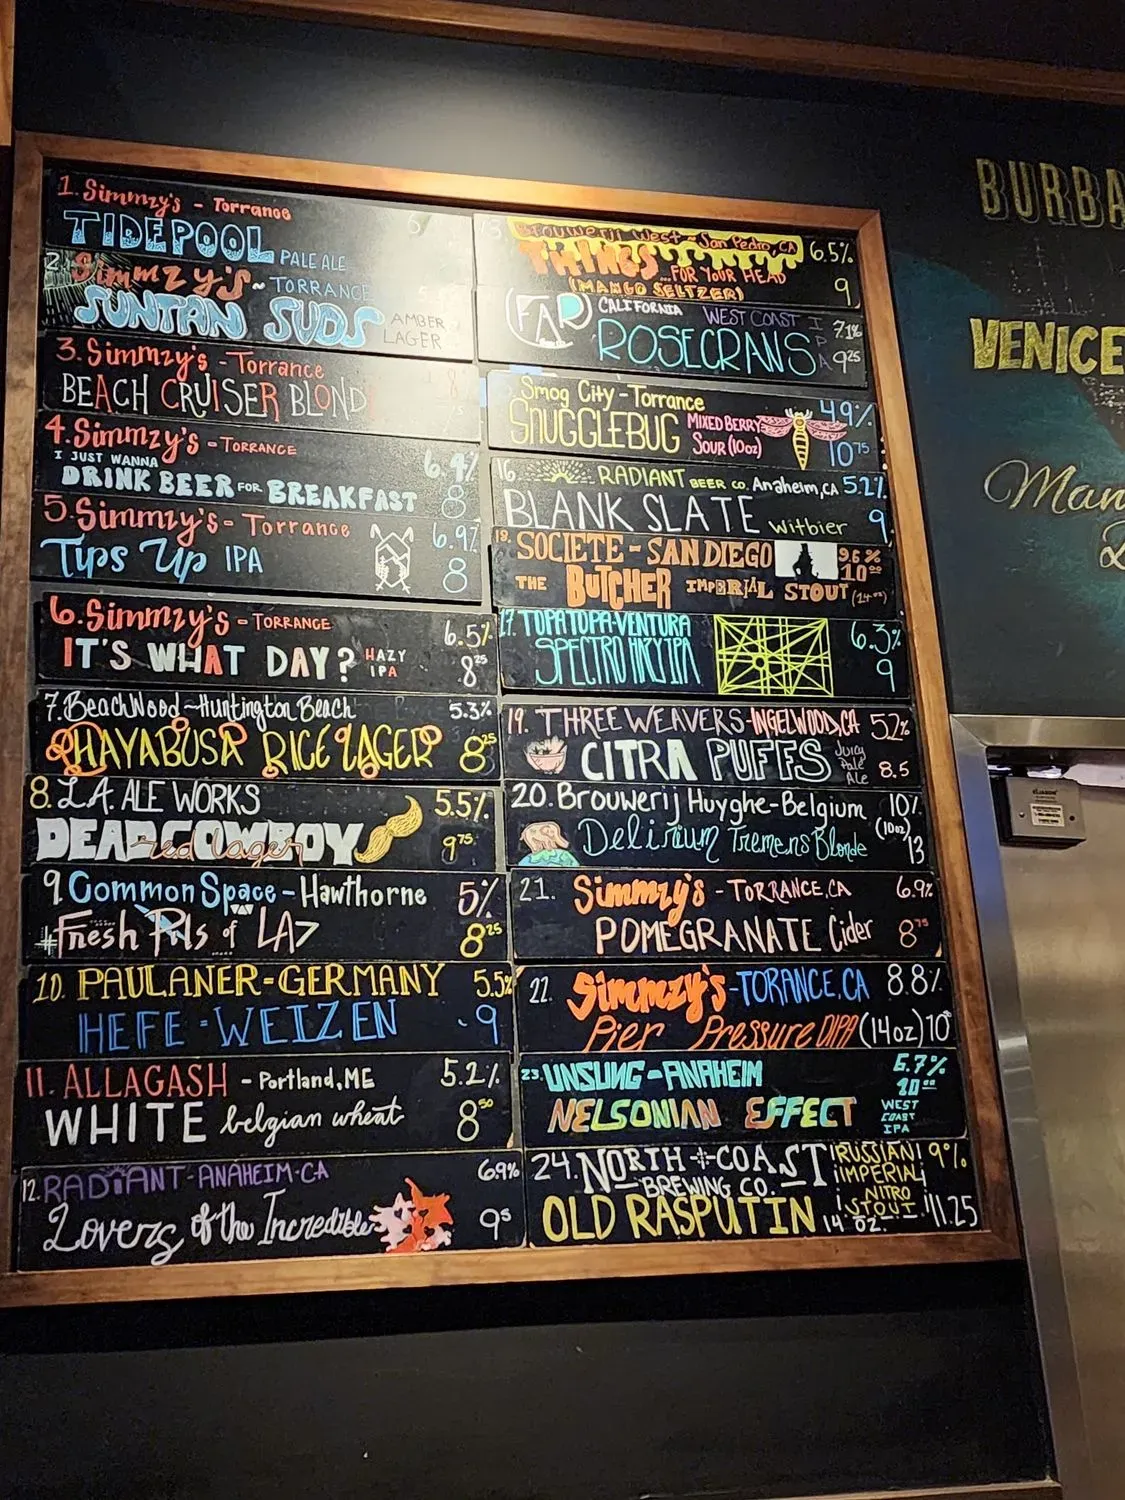 1. Simmzy's - Torrance
TIDEPOOL PALE ALE
2. Simmzy's ~ TORRANCE
SUNTAN SUDS AMBER LAGER
3. Simmzy's - Torrance
BEACH CRUISER BLOND
4. Simmzy's - TORRANCE 6.4%
I JUST WANNA
DRINK BEER FOR BREAKFAST 8
5. Simmzy's - Torrance 6.9%
Tips Up IPA 8
6. Simmzy's - TORRANCE 6.5%
IT'S WHAT DAY? HAZY IPA 8 25
7. BeachWood ~ Huntington Beach 5.3%
HAYABUSA RICE LAGER 8 25
8. L.A. ALE WORKS 5.5%
DEAD COWBOY red lager 9 75
9. Common Space - Hawthorne 5%
#Fresh Pils of LA 8 25
10. PAULANER - GERMANY 5.5%
HEFE-WEIZEN 9
11. ALLAGASH - Portland, ME 5.2%
WHITE belgian wheat 8 50
12. RADIANT - ANAHEIM - CA 6.9%
Lovers of the Incredible 9 5
13. BROUWERIJ West - San Pedro, CA 6.5%
THINGS ...FOR YOUR HEAD
(MANGO SELTZER) 9
FAR CALIFORNIA WEST COAST IPA 7.1%
ROSECRANS 9 25
Smog City - Torrance 4.9%
SNUGGLEBUG MIXED BERRY SOUR (10oz) 10 75
16 RADIANT BEER CO. Anaheim, CA 5.2%
BLANK SLATE Witbier 9
18. SOCIETE - SAN DIEGO 9.6%
THE BUTCHER IMPERIAL STOUT 10 00
17. TOPA TOPA - VENTURA 6.3%
SPECTRO HAZY IPA 9
19. THREE WEAVERS - INGELWOOD, CA 5.2%
CITRA PUFFS Juicy Pale Ale 8.5
20. Brouwerij Huyghe - Belgium 10%
Delirium Tremens Blonde (10oz) 13
21. Simmzy's - TORRANCE, CA 6.9%
POMEGRANATE Cider 8 75
22 Simmzy's - TORANCE, CA 8.8%
Pier Pressure DIPA (14oz) 10
23. UNSUNG - ANAHEIM 6.7%
10 00
NELSONIAN EFFECT WEST COAST IPA
24. NORTH COAST BREWING CO. RUSSIAN IMPERIAL NITRO STOUT 9%
OLD RASPUTIN 14 OZ. 11.25
BURBA
VENICE
Man